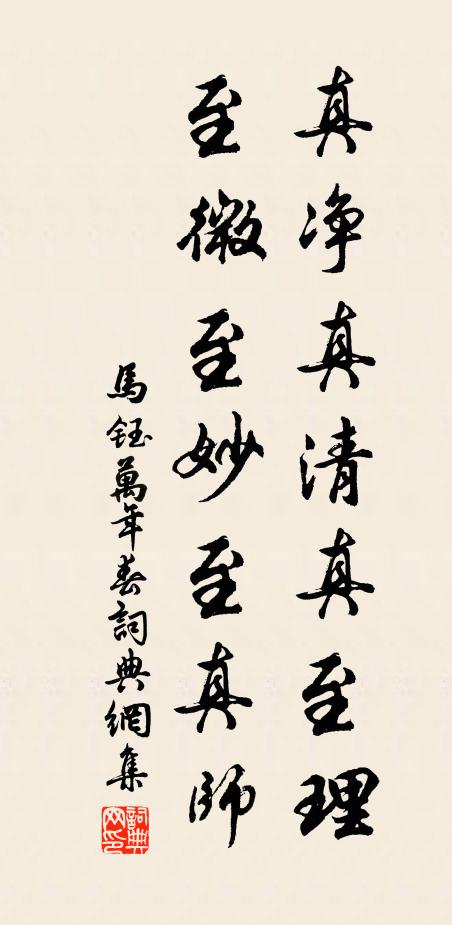 真净真清真至理
至微至妙至真師
馬鈺萬年春詞典網集
詞典网印